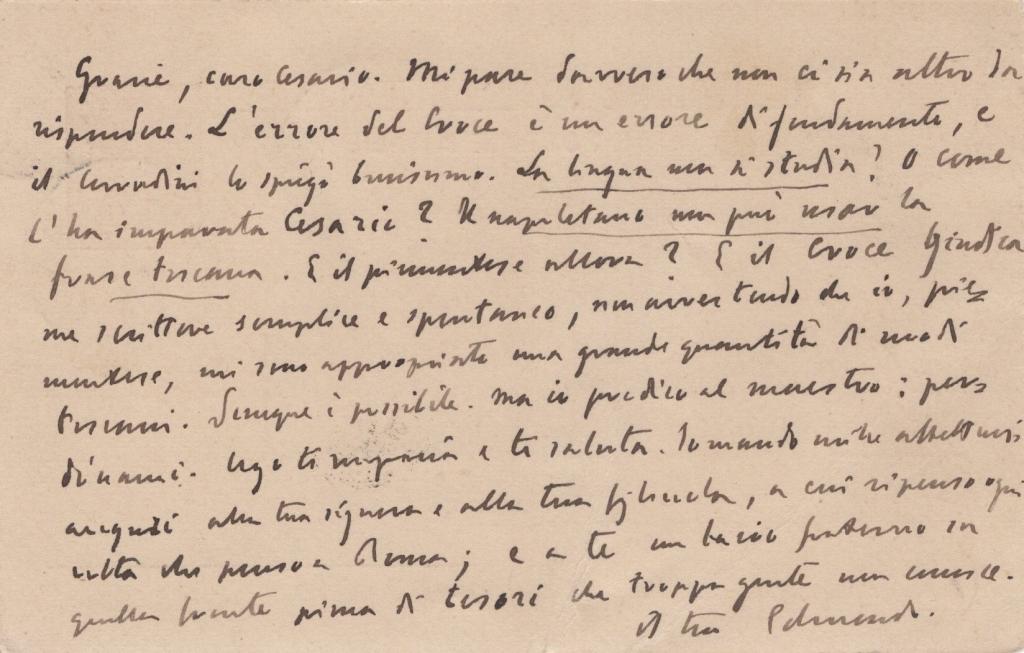 Grazie, caro Cesario. Mi pare davvero che non ci sia altro da
rispondere. L'errore del Croce è un errore di fondamento, e
il Corradini lo spiegò benissimo. La lingua non si studia? O come
l'ha imparata Cesario? Il napoletano non può usar la
frase toscana. E il piemontese allora? E il Croce giudica
me scrittore semplice e spontaneo, non avvertendo che io, pie-
montese, mi sono appropriato una grande quantità di modi
toscani. Dunque è possibile. Ma io predico al maestro; per-
dònami. Ugo ti ringrazia e ti saluta. Io mando mille affettuosi
auguri alla tua signora e alla tua figliuola, a cui ripenso ogni
volta che penso a Roma; e a te un bacio fraterno su
quella fronte piena di tesori che troppa gente non conosce.
Il tuo Edmondo.